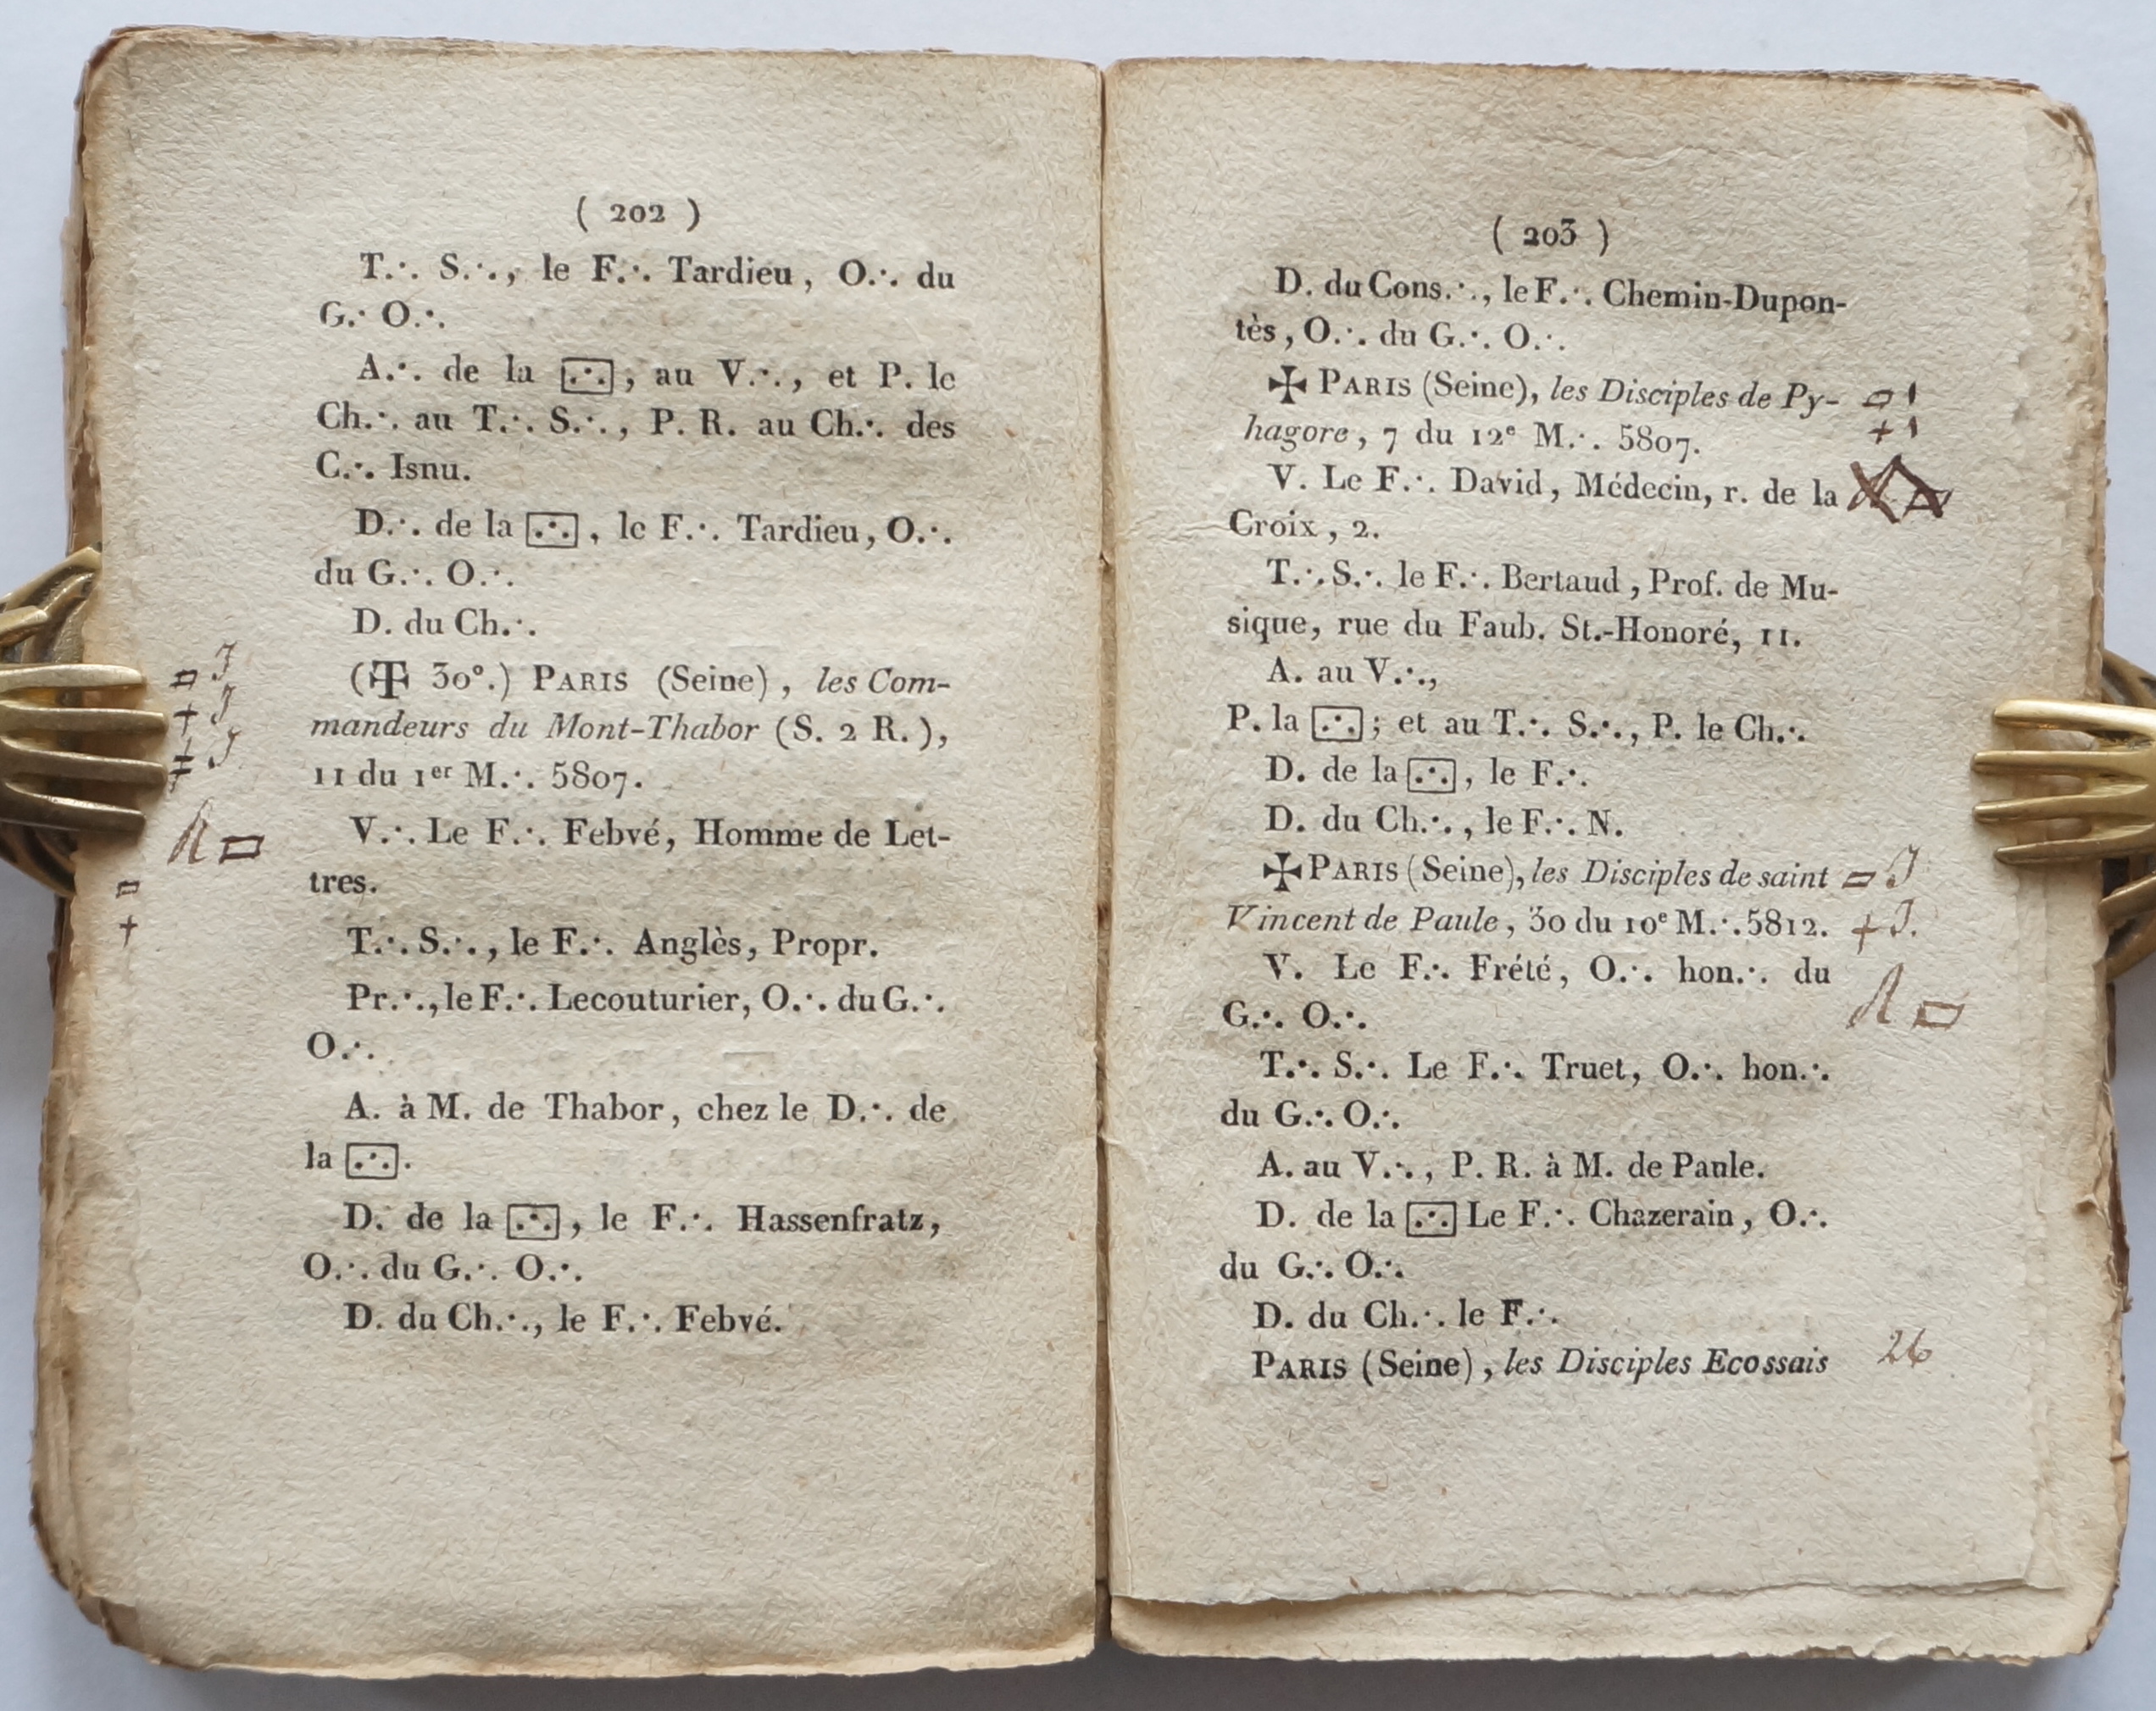 ( 202 )
T.·. S.·., le F.·. Tardieu, O.·. du
G.·. O.·.
A.·. de la [.·.], au V.·., et P. le
Ch.·. au T.·. S.·., P. R. au Ch.·. des
C.·. Isnu.
D.·. de la [.·.], le F.·. Tardieu, O.·.
du G.·. O.·.
D. du Ch.·.
(✠ 30°.) PARIS (Seine), les Com-
mandeurs du Mont-Thabor (S. 2 R.),
11 du 1er M.·. 5807.
V.·. Le F.·. Febvé, Homme de Let-
tres.
T.·. S.·., le F.·. Anglès, Propr.
Pr.·., le F.·. Lecouturier, O.·. du G.·.
O.·.
A. à M. de Thabor, chez le D.·. de
la [.·.].
D. de la [.·.], le F.·. Hassenfratz,
O.·. du G.·. O.·.
D. du Ch.·., le F.·. Febvé.
( 203 )
D. du Cons.·., le F.·. Chemin-Dupon-
tès, O.·. du G.·. O.·.
✠ PARIS (Seine), les Disciples de Py-
hagore, 7 du 12e M.·. 5807.
V. Le F.·. David, Médecin, r. de la
Croix, 2.
T.·. S.·. le F.·. Bertaud, Prof. de Mu-
sique, rue du Faub. St.-Honoré, 11.
A. au V.·.,
P. la [.·.]; et au T.·. S.·., P. le Ch.·.
D. de la [.·.], le F.·.
D. du Ch.·., le F.·. N.
✠ PARIS (Seine), les Disciples de saint
Vincent de Paule, 30 du 10e M.·. 5812.
V. Le F.·. Frété, O.·. hon.·. du
G.·. O.·.
T.·. S.·. Le F.·. Truet, O.·. hon.·.
du G.·. O.·.
A. au V.·., P. R. à M. de Paule.
D. de la [.·.] Le F.·. Chazerain, O.·.
du G.·. O.·.
D. du Ch.·. le F.·.
PARIS (Seine), les Disciples Ecossais 26